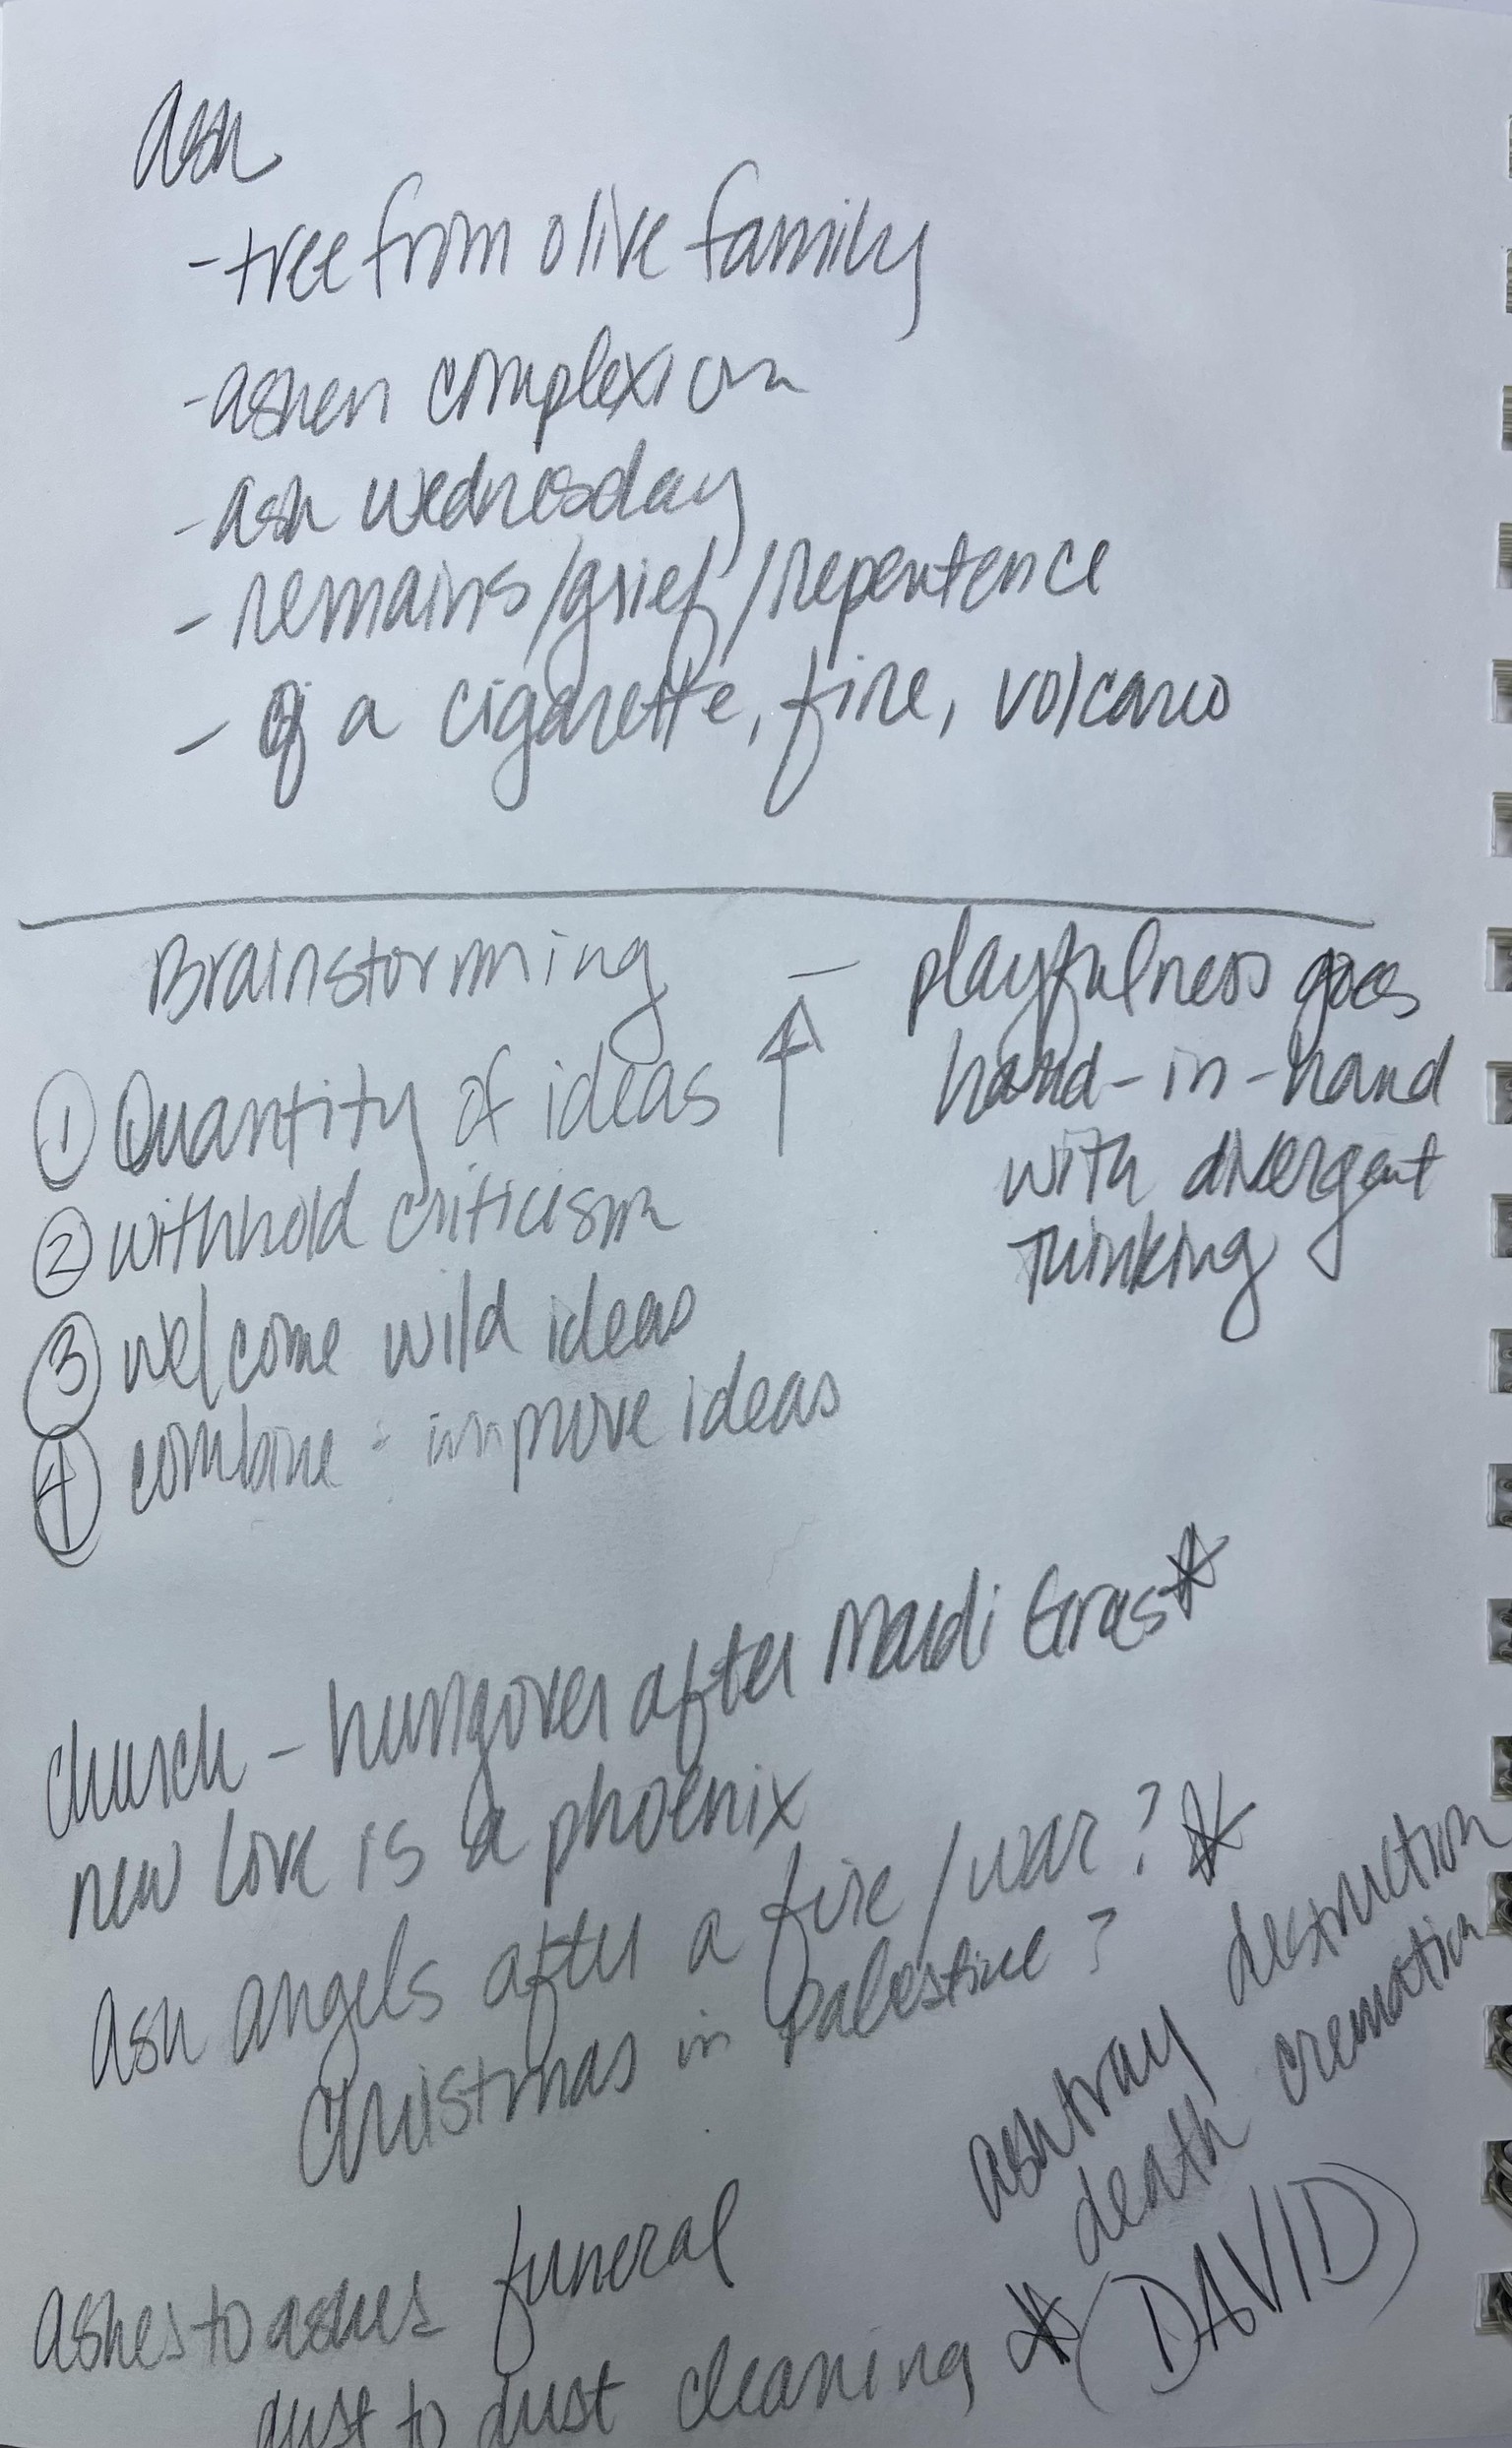 ash
- tree from olive family
- ashen complexion
- ash wednesday
- remains/grief/repentence
- of a cigarette, fire, volcano
Brainstorming
① Quantity of ideas ↑
② withhold criticism
③ welcome wild ideas
④ combine : improve ideas
- playfulness goes
hand-in-hand
with divergent
thinking
church - hungover after Mardi Gras ☆
new love is a phoenix
ash angels after a fire/war? ☆
Christmas in Palestine?
ashtray destruction
death cremation
ashes to ashes funeral
dust to dust cleaning ☆ (DAVID)